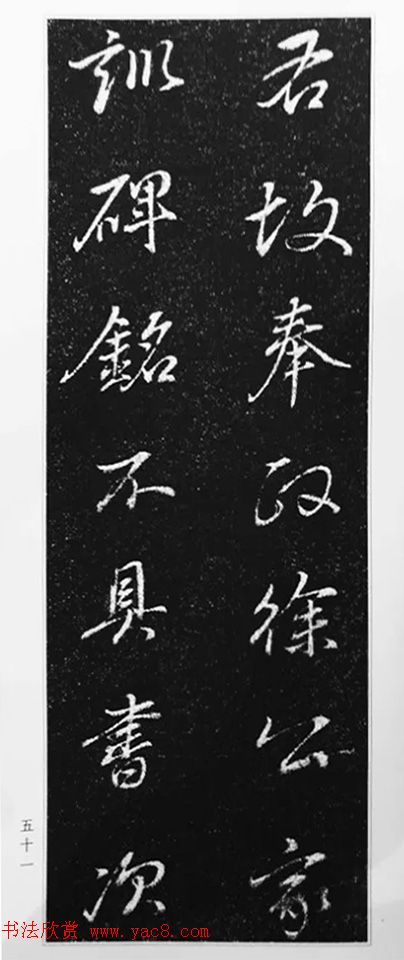 君故奉政徐公家
訓碑銘不具書次
五十一
书法欣赏 www.yac8.com